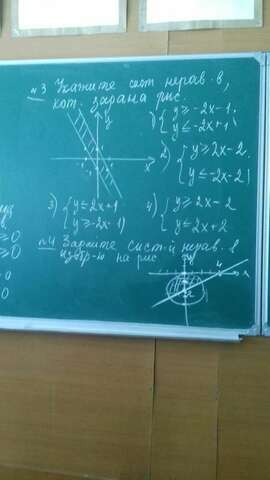 №3 Укажите сист нерав-в,
кот. задана рис.
y
x
1) { y ≥ -2x-1,
y ≤ -2x+1
2) { y ≥ 2x-2
y ≤ -2x-2
3) { y ≤ 2x+1
y ≥ -2x-1)
4) { y ≥ 2x-2
y ≤ 2x+2
№4 сист-й нерав-в
на рис
y
4
x
≥0
≥0
0
0